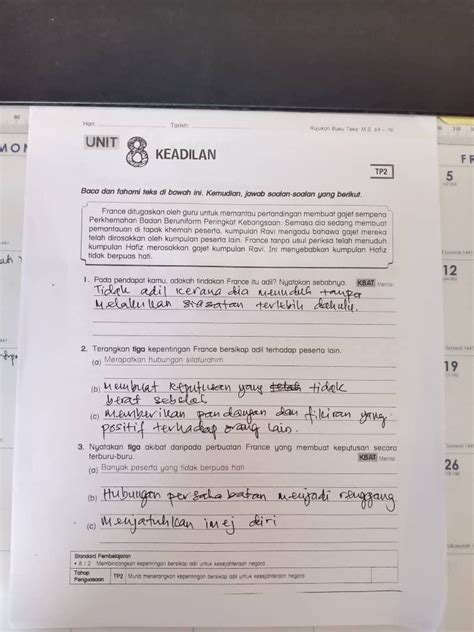 Hari: Tarikh: Rujukan Buku Teks: M.S. 68 – 76
UNIT 8 KEADILAN
TP2
Baca dan fahami teks di bawah ini. Kemudian, jawab soalan-soalan yang berikut.
France ditugaskan oleh guru untuk memantau pertandingan membuat gajet sempena
Perkhemahan Badan Beruniform Peringkat Kebangsaan. Semasa dia sedang membuat
pemantauan di tapak khemah peserta, kumpulan Ravi mengadu bahawa gajet mereka
telah dirosakkan oleh kumpulan peserta lain. France tanpa usul periksa telah menuduh
kumpulan Hafiz merosakkan gajet kumpulan Ravi. Ini menyebabkan kumpulan Hafiz
tidak berpuas hati.
1. Pada pendapat kamu, adakah tindakan France itu adil? Nyatakan sebabnya. KBAT Menilai
Tidak adil kerana dia menuduh tanpa
melakukan siasatan terlebih dahulu.
2. Terangkan tiga kepentingan France bersikap adil terhadap peserta lain.
(a) Merapatkan hubungan silaturahim
(b) Membuat keputusan yang tidak
berat sebelah
(c) memberikan pandangan dan fikiran yang
positif terhadap orang lain.
3. Nyatakan tiga akibat daripada perbuatan France yang membuat keputusan secara
terburu-buru. KBAT Menilai
(a) Banyak peserta yang tidak berpuas hati
(b) Hubungan persahabatan menjadi renggang
(c) Menjatuhkan imej diri
Standard Pembelajaran
• 8.1.2 Membincangkan kepentingan bersikap adil untuk kesejahteraan negara
Tahap
Penguasaan TP2 Murid menerangkan kepentingan bersikap adil untuk kesejahteraan negara
5
12
19
26